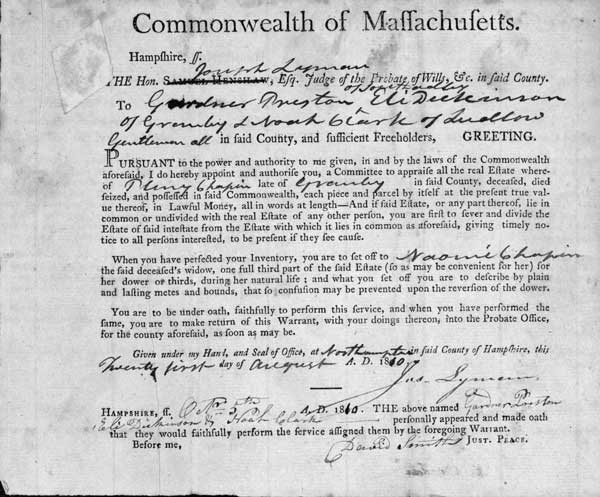 Commonwealth of Maſſachuſetts.
Hampſhire, ſſ.
Joseph Lyman
THE Hon. SAMUEL HENSHAW, Eſq. Judge of the Probate of Wills, &c. in ſaid County.
of Southadley
To Gardner Preston, Eli Dickinson
of Granby & Noah Clark of Ludlow
Gentlemen all in ſaid County, and ſufficient Freeholders, GREETING.
PURSUANT to the power and authority to me given, in and by the laws of the Commonwealth
aforeſaid, I do hereby appoint and authoriſe you, a Committee to appraiſe all the real Eſtate where-
of Pliny Chapin late of Granby in ſaid County, deceaſed, died
ſeized, and poſſeſſed in ſaid Commonwealth, each piece and parcel by itſelf at the preſent true val-
ue thereof, in Lawful Money, all in words at length—And if ſaid Eſtate, or any part thereof, lie in
common or undivided with the real Eſtate of any other perſon, you are firſt to ſever and divide the
Eſtate of ſaid inteſtate from the Eſtate with which it lies in common as aforeſaid, giving timely no-
tice to all perſons intereſted, to be preſent if they ſee cauſe.
When you have perfected your Inventory, you are to ſet off to Naomi Chapin
the ſaid deceaſed's widow, one full third part of the ſaid Eſtate (ſo as may be convenient for her) for
her dower or thirds, during her natural life; and what you ſet off you are to deſcribe by plain
and laſting metes and bounds, that ſo confuſion may be prevented upon the reverſion of the dower.
You are to be under oath, faithfully to perform this ſervice, and when you have performed the
ſame, you are to make return of this Warrant, with your doings thereon, into the Probate Office,
for the county aforeſaid, as ſoon as may be.
Given under my Hand, and Seal of Office, at Northampton in ſaid County of Hampſhire, this
Twenty first day of August A. D. 1810.
Jos. Lyman
HAMPSHIRE, ſſ. 5th A. D. 1810. THE above named Gardner Preston
Eli Dickinson & Noah Clark perſonally appeared and made oath
that they would faithfully perform the ſervice aſſigned them by the foregoing Warrant.
Before me, David Smith JUST. PEACE.